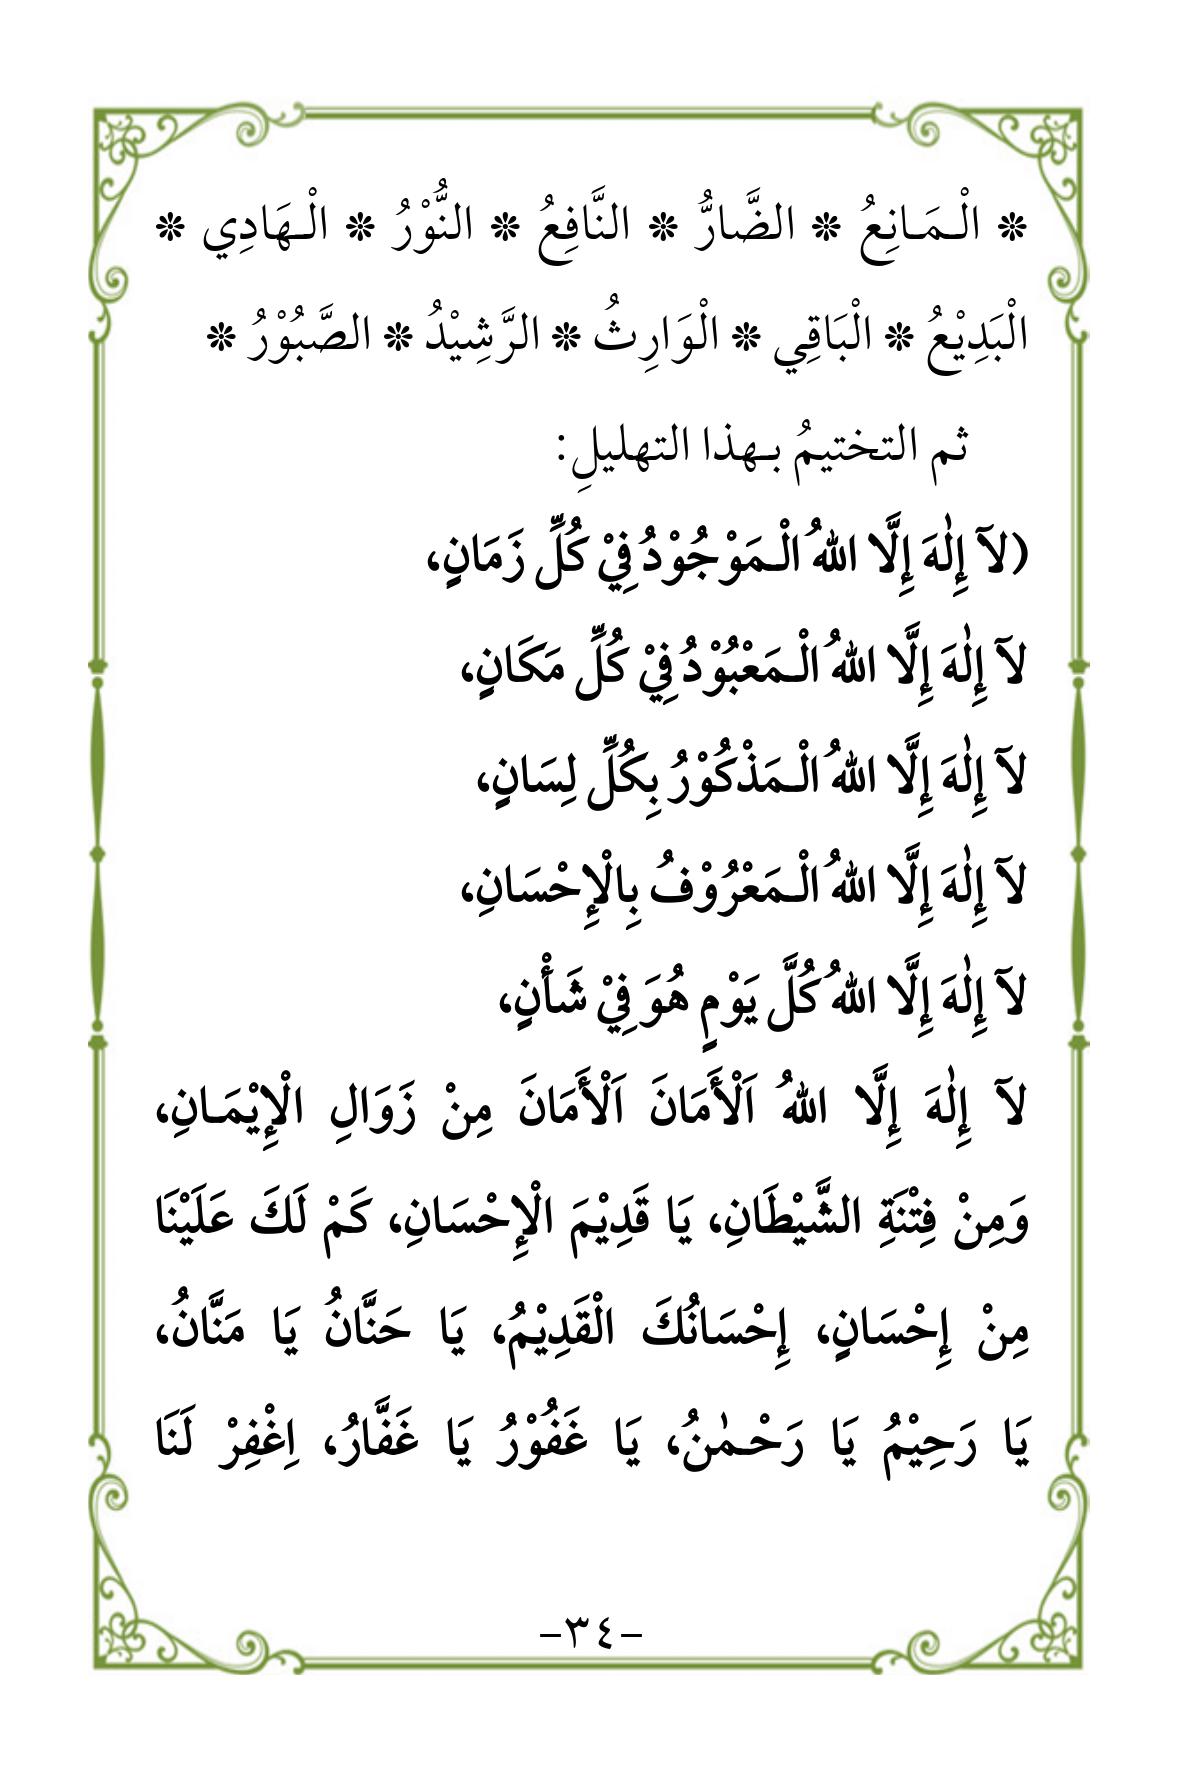 ❊ الْـمَـانِعُ ❊ الضَّارُّ ❊ النَّافِعُ ❊ النُّوْرُ ❊ الْـهَادِي ❊
الْبَدِيْعُ ❊ الْبَاقِي ❊ الْوَارِثُ ❊ الرَّشِيْدُ ❊ الصَّبُوْرُ ❊
ثم التختيمُ بـهذا التهليلِ:
(لآ إِلٰهَ إِلَّا اللهُ الْـمَوْجُوْدُ فِيْ كُلِّ زَمَانٍ،
لآ إِلٰهَ إِلَّا اللهُ الْـمَعْبُوْدُ فِيْ كُلِّ مَكَانٍ،
لآ إِلٰهَ إِلَّا اللهُ الْـمَذْكُوْرُ بِكُلِّ لِسَانٍ،
لآ إِلٰهَ إِلَّا اللهُ الْـمَعْرُوْفُ بِالْإِحْسَانِ،
لآ إِلٰهَ إِلَّا اللهُ كُلَّ يَوْمٍ هُوَ فِيْ شَأْنٍ،
لآ إِلٰهَ إِلَّا اللهُ اَلْأَمَانَ اَلْأَمَانَ مِنْ زَوَالِ الْإِيْمَـانِ،
وَمِنْ فِتْنَةِ الشَّيْطَانِ، يَا قَدِيْمَ الْإِحْسَانِ، كَمْ لَكَ عَلَيْنَا
مِنْ إِحْسَانٍ، إِحْسَانُكَ الْقَدِيْمُ، يَا حَنَّانُ يَا مَنَّانُ،
يَا رَحِيْمُ يَا رَحْـمٰنُ، يَا غَفُوْرُ يَا غَفَّارُ، اِغْفِرْ لَنَا
–٣٤–